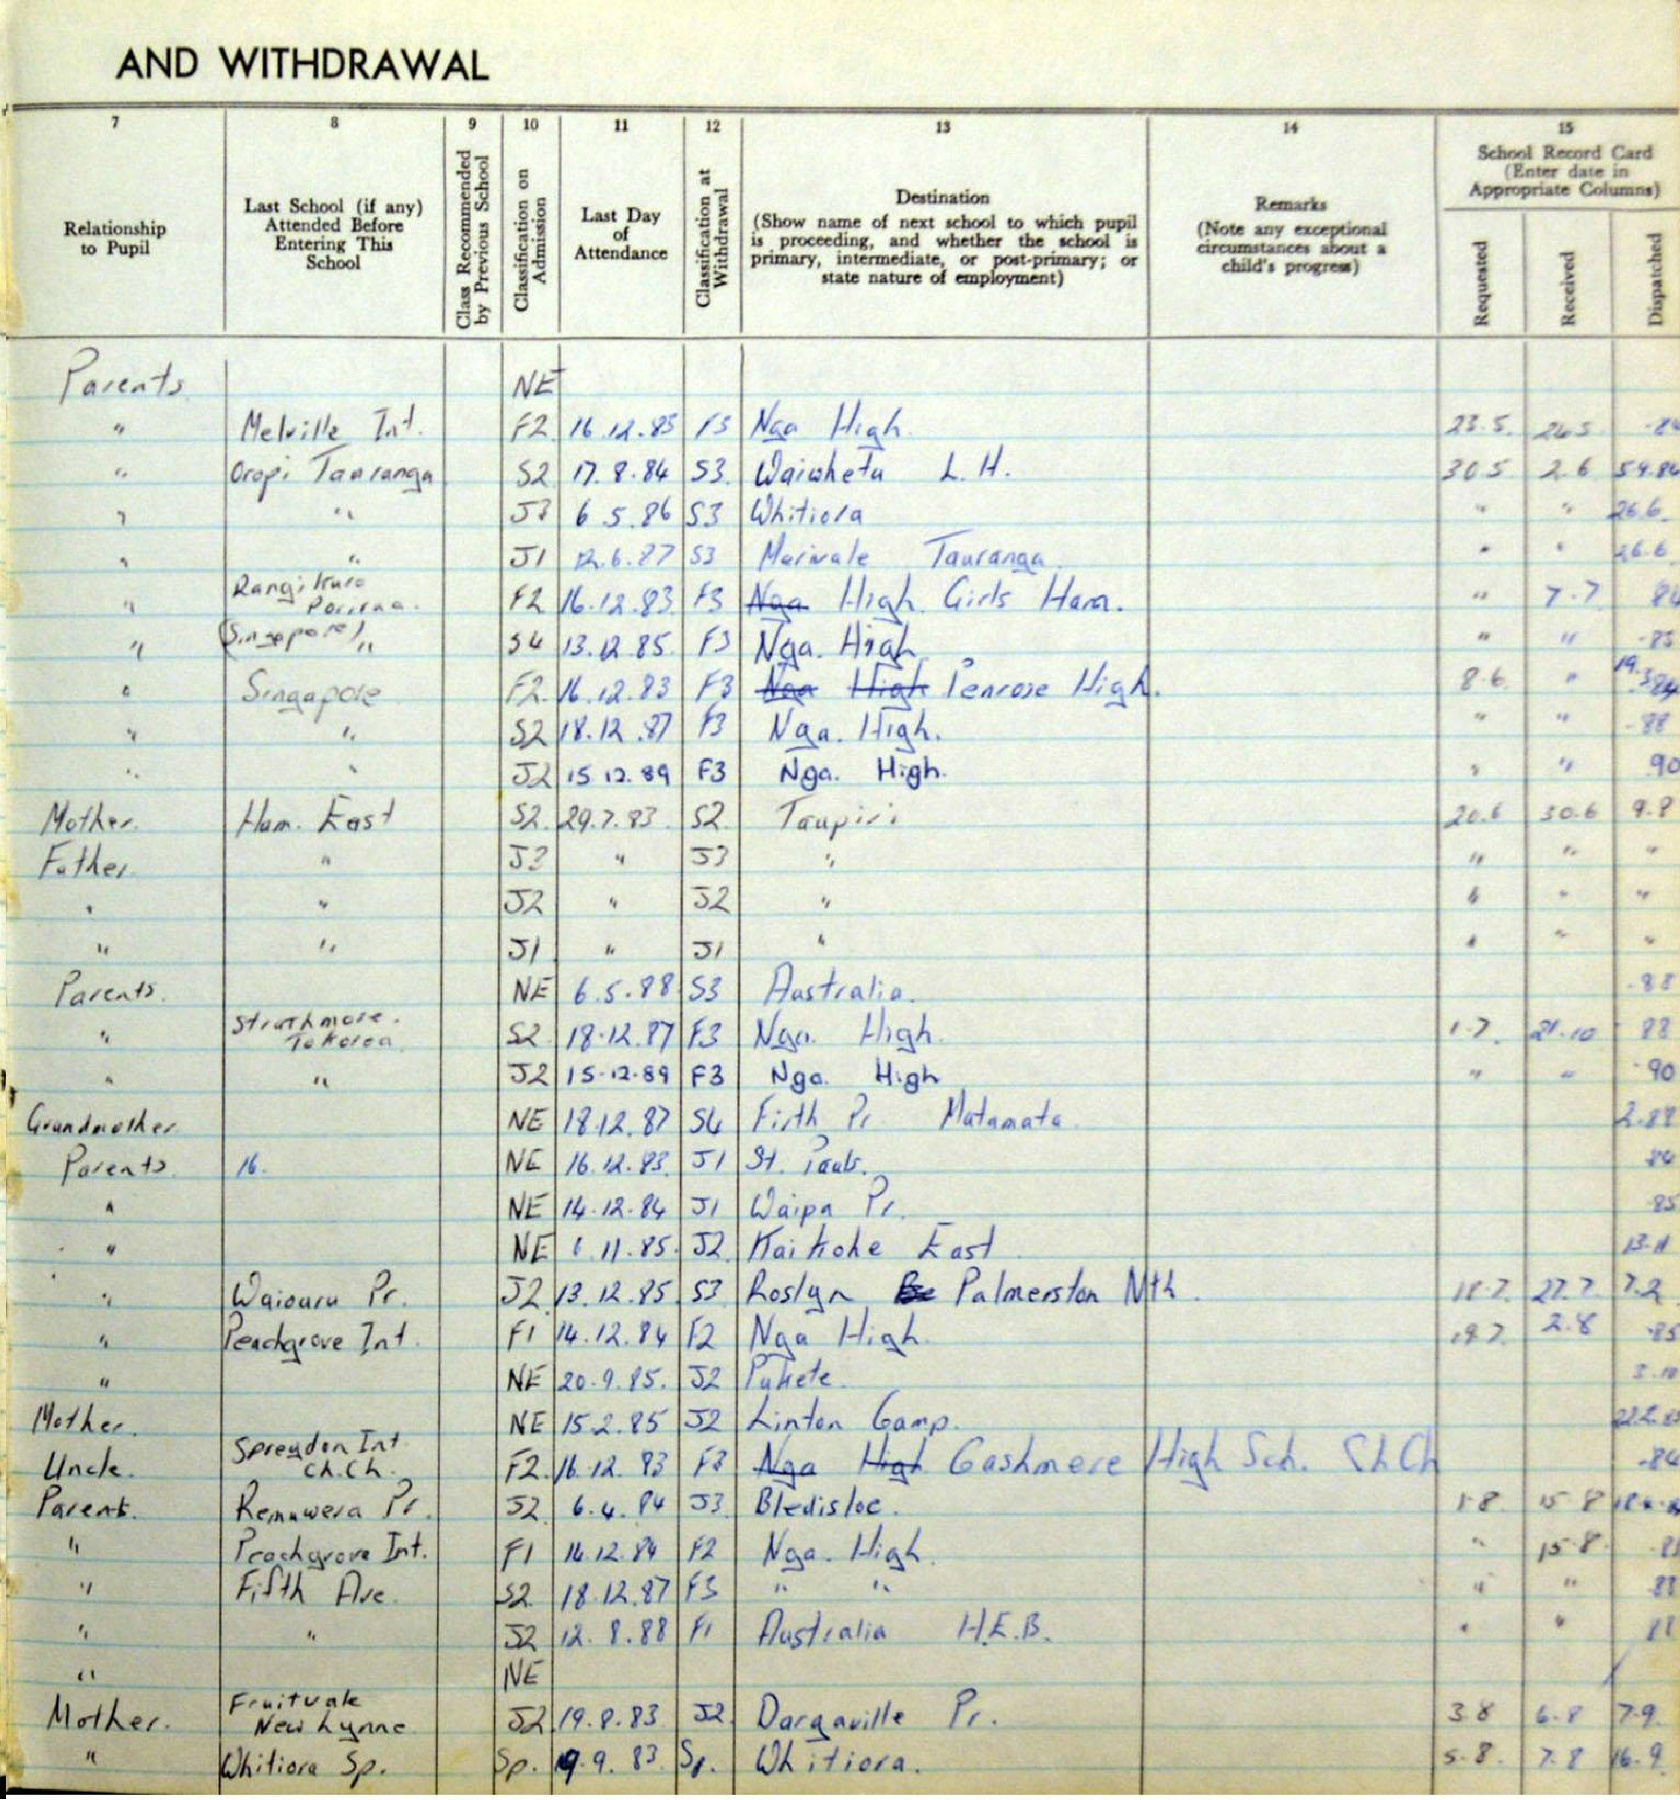 AND WITHDRAWAL
7 8 9 10 11 12 13 14 15
Relationship to Pupil
Last School (if any) Attended Before Entering This School
Class Recommended by Previous School
Classification on Admission
Last Day of Attendance
Classification at Withdrawal
Destination
(Show name of next school to which pupil is proceeding, and whether the school is primary, intermediate, or post-primary; or state nature of employment)
Remarks
(Note any exceptional circumstances about a child's progress)
School Record Card
(Enter date in Appropriate Columns)
Requested Received Dispatched
Parents NE
" Melville Int. F2 16.12.83 F3 Nga High 23.5. 26.5 -84
" Oropi Tauranga S2 17.8.84 S3 Waiwhetu L.H. 30.5 2.6 5.9.84
" " 6.5.86 S3 Whitiora " " 26.6
" " J1 12.6.87 S3 Merivale Tauranga " " 26.6
" Porirua. F2 16.12.83 F3 Nga High Girls Ham. " 7.7 84
" (Singapore) " S4 13.12.85. F3 Nga. High " " -85
" Singapore F2 16.12.83 F3 Nga High Penrose High. 8.6 "
" " S2 18.12.87 F3 Nga. High. " " -88
" " J2 15.12.89 F3 Nga. High. " " 90
Mother. Ham. East S2. 29.7.83 S2. Taupiri 20.6 30.6 9.8
Father " J3 " J3 " " " "
" " J2 " J2 " " " "
" " J1 " J1 " " " "
Parents. NE 6.5.88 S3 Australia. -88
" Strathmore. Tokoroa S2 18.12.87 F3 Nga. High. 1.7. 21.10 88
" " J2 15.12.89 F3 Nga. High " " -90
Grandmother NE 18.12.87 S4 Firth Pr Matamata 2.88
Parents. 16. NE 16.12.83. J1 St. Pauls. 84
" NE 14.12.84 J1 Waipa Pr. -85
" NE 1.11.85. J2 Kaikohe East 13.11
" Waiouru Pr. J2 13.12.85 S3 Roslyn Palmerston Nth. 18.7. 27.7. 7.2
" Peachgrove Int. F1 14.12.84 F2 Nga High. 19.7. 2.8 -85
" NE 20.9.85. J2 Pukete. 3.10
Mother. NE 15.2.85 J2 Linton Camp.
Uncle. Spreydon Int Ch.Ch. F2. 16.12.83 F3 Nga High Cashmere High Sch. ChCh -84
Parents. Remuwera Pr. J2 6.4.84 J3 Bledisloe. 1.8 15.8
" Peachgrove Int. F1 14.12.84 F2 Nga. High. " 15.8.
" Fifth Ave. S2 18.12.87 F3 " " " " 88
" " J2 12.8.88 F1 Australia H.E.B. " " 88
" NE
Mother. Fruitvale New Lynne J2 19.8.83 J2 Dargaville Pr. 3.8 6.8 7.9.
" Whitiora Sp. Sp. 9.9.83 Sp. Whitiora. 5.8. 7.8 16.9